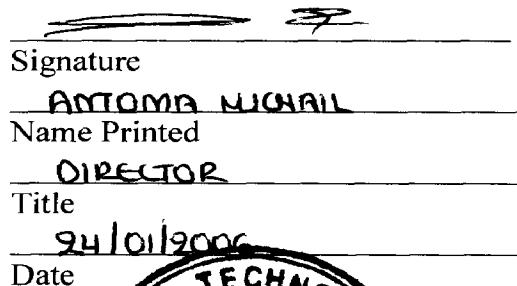 Signature
ANTONIA MICHAIL
Name Printed
DIRECTOR
Title
24/01/2006
Date
TECHNO